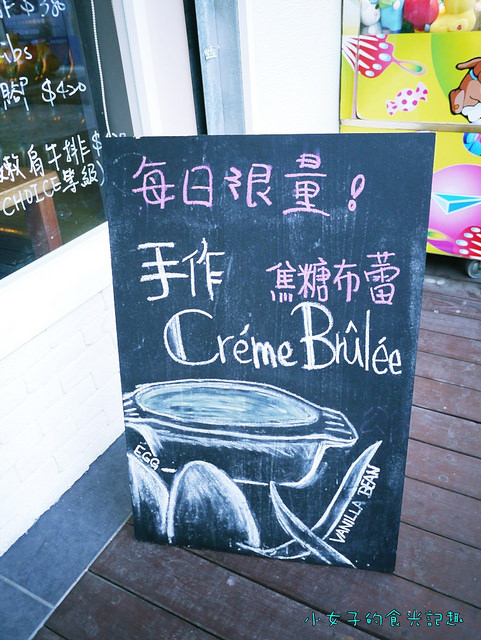 ibs
腳 $420
嫩肩牛排
CHOICE學級)
每日限量!
手作 焦糖布蕾
Créme Brûlée
EGG
VANILLA BEAN
小女子的食光記趣